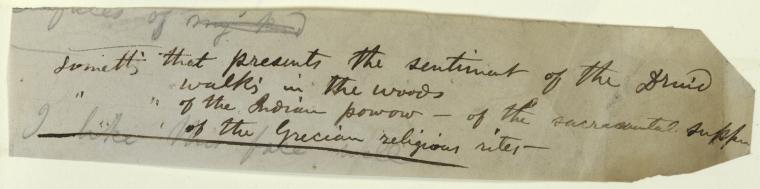 of my hand
Sometg that presents the sentiment of the Druid
walks in the woods
" " of the Indian powow — of the sacramental supper
" " of the Grecian religious rites —
I like